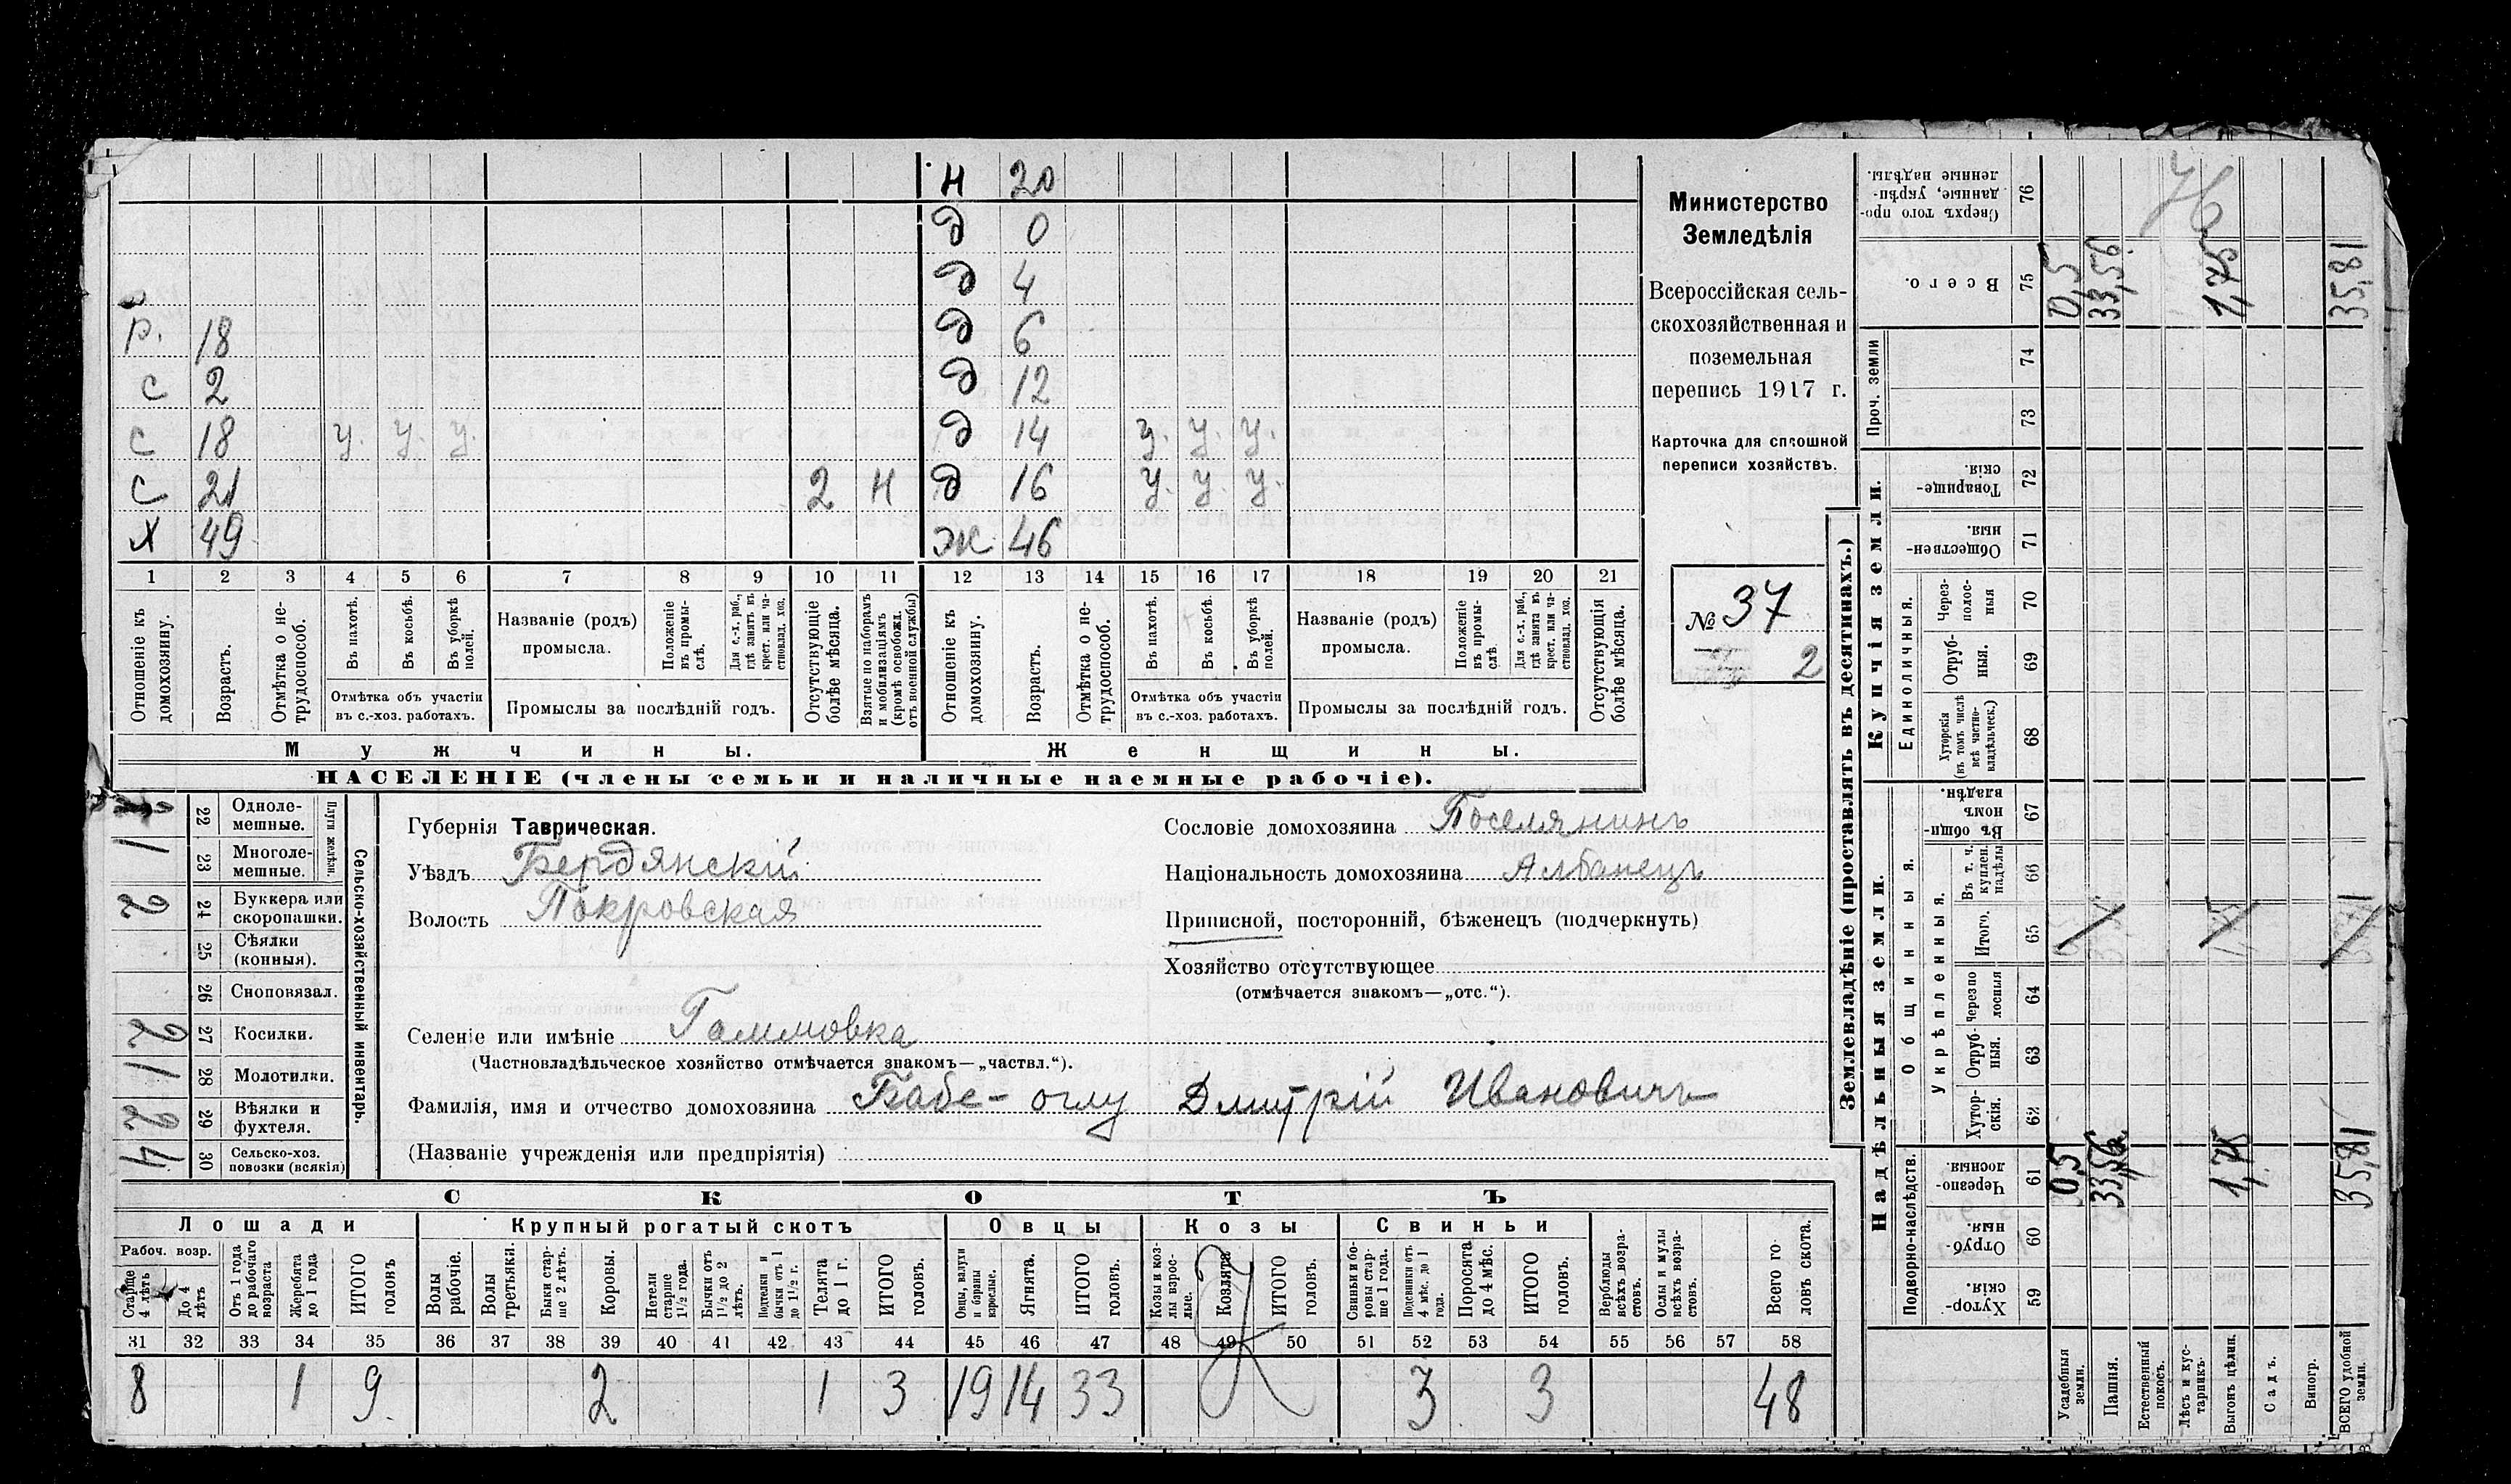 н 20
д 0
д 4
р. 18 д 6
с 2 д 12
с 18 у. у. у. д 14 у. у. у.
с 21 2 н д 16 у. у. у.
х 49 ж 46
1 2 3 4 5 6 7 8 9 10 11 12 13 14 15 16 17 18 19 20 21
Отношеніе къ домохозяину.
Возрастъ.
Отмѣтка о не-трудоспособ.
Въ пахотѣ.
Въ косьбѣ.
Въ уборкѣ полей.
Отмѣтка объ участіи
въ с.-хоз. работахъ.
Названіе (родъ)
промысла.
Положеніе въ промы-слѣ.
Для с.-х. раб., гдѣ занятъ въ крест. или ча-стновлад. хоз.
Промыслы за послѣдній годъ.
Отсутствующіе болѣе мѣсяца.
Взятые по наборамъ и мобилизаціямъ (кромѣ освобожд. отъ военной службы)
Отношеніе къ домохозяину.
Возрастъ.
Отмѣтка о не-трудоспособ.
Въ пахотѣ.
Въ косьбѣ.
Въ уборкѣ полей.
Отмѣтка объ участіи
въ с.-хоз. работахъ.
Названіе (родъ)
промысла.
Положеніе въ промы-слѣ.
Для с.-х. раб., гдѣ занята въ крест. или ча-стновлад. хоз.
Промыслы за послѣдній годъ.
Отсутствующія болѣе мѣсяца.
Мужчины.
Женщины.
НАСЕЛЕНІЕ (члены семьи и наличные наемные рабочіе).
Министерство
Земледѣлія
Всероссійская сель-
скохозяйственная и
поземельная
перепись 1917 г.
Карточка для сплошной
переписи хозяйствъ.
№ 37
2
Сельско-хозяйственный инвентарь.
Плуги желѣзн.
22 Одноле-мешные.
1 23 Многоле-мешные.
2 24 Буккера или скоропашки.
25 Сѣялки (конныя).
26 Сноповязал.
2 27 Косилки.
1 28 Молотилки.
2 29 Вѣялки и фухтеля.
4 30 Сельско-хоз. повозки (всякія)
Губернія Таврическая.
Уѣздъ Бердянскій
Волость Покровская
Сословіе домохозяина Поселянинъ
Національность домохозяина Албанецъ
Приписной, посторонній, бѣженецъ (подчеркнуть)
Хозяйство отсутствующее
(отмѣчается знакомъ—„отс.“).
Селеніе или имѣніе Гаммовка
(Частновладѣльческое хозяйство отмѣчается знакомъ—„частвл.“).
Фамилія, имя и отчество домохозяина Бабе-оглу Дмитрій Ивановичъ
(Названіе учрежденія или предпріятія)
СКОТЪ
Лошади Крупный рогатый скотъ Овцы Козы Свиньи
Рабоч. возр.
Старше 4 лѣтъ
До 4 лѣтъ
Отъ 1 года до рабочаго возраста
Жеребята до 1 года
ИТОГО головъ
Волы рабочіе.
Волы третьяки.
Быки стар-ше 2 лѣтъ.
Коровы.
Нетели старше 1½ года.
Бычки отъ 1½ до 2 лѣтъ.
Подтелки и бычки отъ 1 до 1½ г.
Телята до 1 г.
ИТОГО головъ.
Овцы, валухи и бараны взрослые.
Ягнята.
ИТОГО головъ.
Козы и коз-лы взрос-лые.
Козлята
ИТОГО головъ.
Свиньи и бо-ровы стар-ше 1 года.
Подсвинки отъ 4 мѣс. до 1 года.
Поросята до 4 мѣс.
ИТОГО головъ.
Верблюды всѣхъ возра-стовъ.
Ослы и мулы всѣхъ возра-стовъ.
Всего го-ловъ скота.
31 32 33 34 35 36 37 38 39 40 41 42 43 44 45 46 47 48 49 50 51 52 53 54 55 56 57 58
8 1 9 2 1 3 19 14 33 3 3 48
Землевладѣніе (проставлять въ десятинахъ.)
Купчія земли.
Надѣльныя земли.
Сверхъ того про-данные, укрѣп-ленные надѣлы. 76
Всего. 75 0,5 33,56 1,75 35,81
Проч. земли
74
73
Товарище-скія. 72
Обществен-ныя. 71
Единоличныя.
Через-полос-ныя 70
Отруб-ныя. 69
Хуторскія (въ томъ числѣ всѣ частно-владѣльческ.) 68
Въ общи-номъ владѣн. 67
Общинныя.
Укрѣпленныя.
Въ т. ч. куплен. надѣлы 66
Итого. 65
Черезпо-лосныя 64
Отруб-ныя. 63
Хутор-скія. 62
Подворно-наслѣдств.
Черезпо-лосныя 61 0,5 33,56 1,75 35,81
Отруб-ныя. 60
Хутор-скія. 59
Усадебныя земли.
Пашня.
Естественный покосъ.
Лѣсъ и кус-тарникъ.
Выгонъ цѣлин.
Садъ.
Виногр.
ВСЕГО удобной земли.